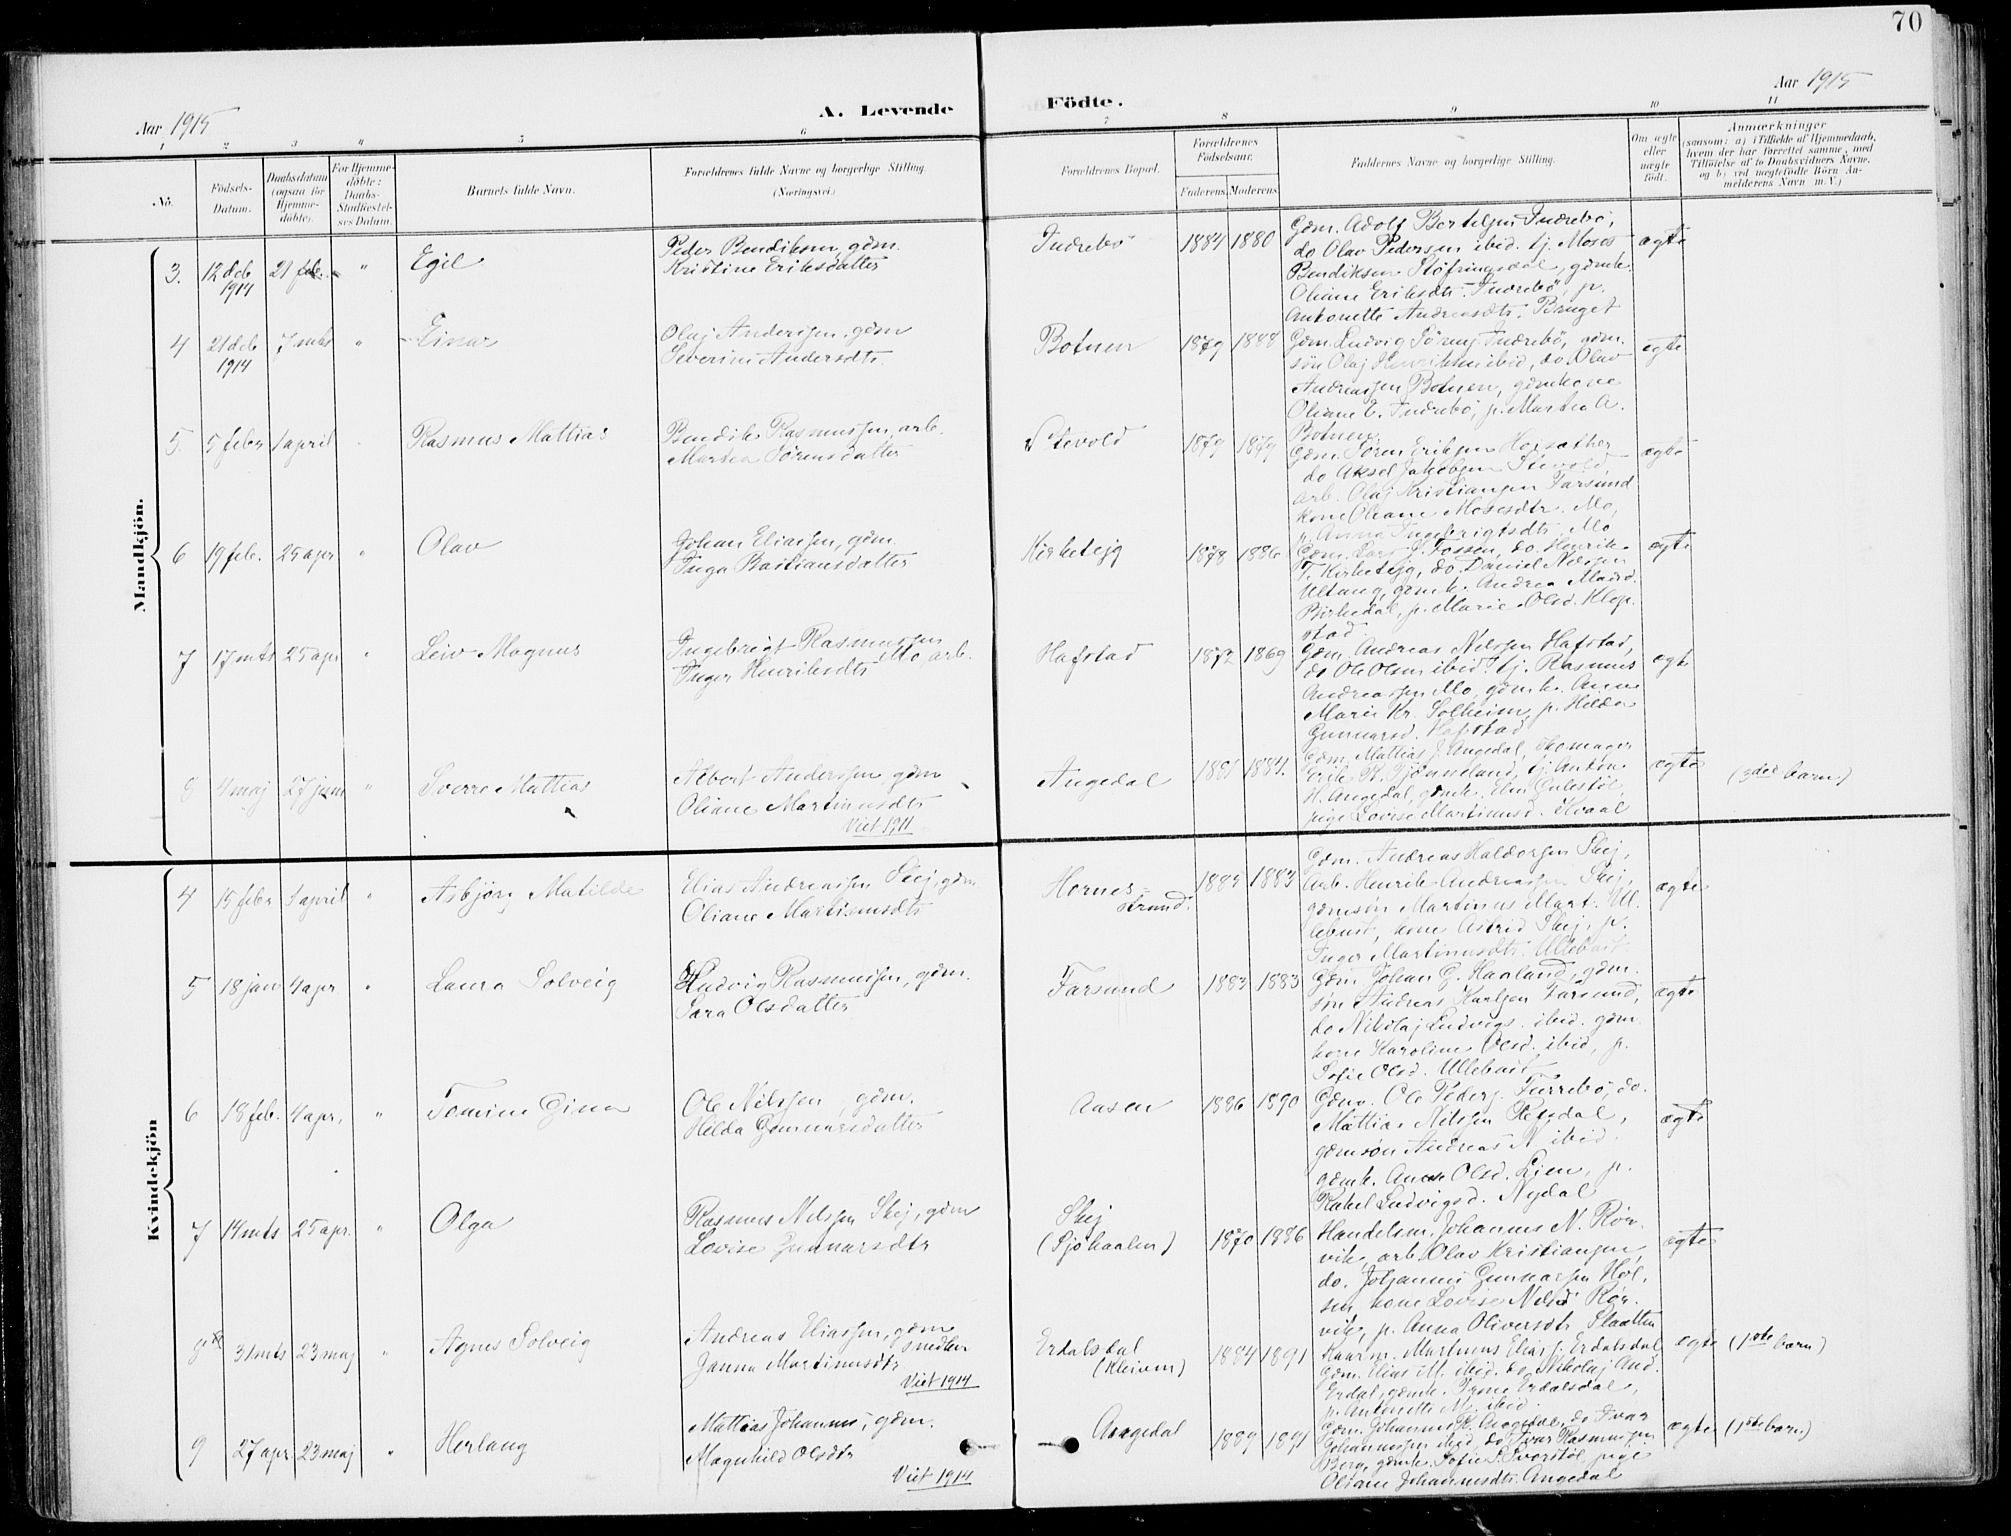 70
Aar 1915
A. Levende
Födte.
Aar 1915
1 2 3 4 5 6 7 8 9 10 11
No.
Födsels-Datum.
Daabsdatum (ogsaa for Hjemme-döbte).
For Hjemme-döbte: Daabs-Stadfæstel-ses Datum.
Barnets fulde Navn.
Forældrenes fulde Navne og borgerlige Stilling.
(Næringsvei.)
Forældrenes Bopæl.
Forældrenes Födselsaar.
Faderens. Moderens.
Faddernes Navne og borgerlige Stilling.
Om ægte eller uægte födt.
Anmærkninger
(saasom: a) i Tilfælde af Hjemmedaab,
hvem der har forrettet samme, med
Tilföielse af to Daabsvidners Navne,
og b) ved uægtefödte Börn An-
melderens Navn m. V.)
Mandkjön.
3. 12 deb 1914 21 feb. " Egil
Peder Bendiksen, gdm.
Kristine Eriksdatter
Indrebö 1884 1880
Gdm. Adolf Bertelsen Indrebö,
do Olav Pedersen ibid. tj. Moses
Bendiksen Stöfringsdal, gdmk.
Oliane Eriksdtr. Indrebö, p.
Antonette Andreasdtr. Bruget
ægte
4 21 deb 1914 7 mts " Einar
Olaj Anderssen, gdm
Severine Andersdtr.
Botnen 1879 1888
Gdm. Ludvig Sörens. Indrebö, gdm.
sön Olaj Henriksen ibid, do. Olav
Andreassen Botnen, gdmkone
Oliane E. Indrebö, p. Martea A.
Botnen.
ægte
5. 5 febr 1 april Rasmus Mattias
Bendik Rasmussen, arb.
Martea Sörensdatter
Stevold 1879 1879
Gdm. Sören Eriksen Hojsæther
do Aksel Jakobsen Stevold,
arb. Olaj Kristiansen Farsund
kone Oliane Mosesdtr. Mo,
p. Anna Ingebrigtsdtr. Mo
ægte
6 19 feb. 25 apr " Olav
Johan Eliassen, gdm.
Inga Bastiansdatter
Kirketejg 1878 1886
Gdm. Lars J. Fossen, do. Henrik
T. Kirketejg, do. Daniel Nelssen
Ultang, gdmk. Andrea Madsd.
Birkedal, p. Marie Olsd. Klop-
stad
ægte
7 17 mts 25 apr " Leiv Magnus
Ingebrigt Rasmussen
Mo arb.
Inger Henriksdtr
Hafstad 1872 1869
Gdm. Andreas Nelssen Hafstad,
do Ole Olsen ibid. tj. Rasmus
Andreassen Mo, gdmk. Anne
Marie Kr. Solheim, p. Helda
Gunnarsd. Hafstad
ægte
8 4 maj 27 juni " Sverre Mattias
Albert Anderssen gdm
Oliane Martinusdtr
Viet 1911
Angedal 1881 1884.
Gdm. Mattias J. Angedal, Skomager
Erik N. Fjönneland, tj. Anton
H. Angedal, gdmk. Elen Gulestöl,
pige Lovise Martinusd. Kvaal
ægte (3die barn.)
Kvindekjön
4 15 febr 1 april " Asbjörg Matilde
Elias Andreassen Skej, gdm
Oliane Martinusdtr
Hornes-
strand. 1885 1883
Gdm. Andreas Haldorsen Skej,
Arb. Henrik Andreassen Skej,
gdmsön Martinus Mart. Ul-
lebust, kone Astrid Skej, p.
Inger Martinusdtr. Ullebust
ægte
5 18 jan 4 apr " Laura Solveig
Ludvig Rasmussen, gdm.
Sara Olsdatter
Farsund 1883 1883
Gdm. Johan G. Haaland, gdm.
sön Andreas Karlsen Farsund,
do Nikolaj Ludvigs. ibid. gdm.
kone Karoline Olsd. ibid, p.
Sofie Olsd. Ullebust
ægte
6 18 feb. 4 apr, " Tomine Gina
Ole Nilssen, gdm.
Hilda Gunnarsdatter
Aasen 1886 1890
Gdm. Ole Peders. Furrebö, do.
Mattias Nilssen Refsdal,
gdmsön Andreas N. ibid.
gdmk. Anne Olsd. Lien, p.
Rakel Ludvigsd. Nydal
ægte
7 14 mts 25 apr. " Olga
Rasmus Nelssen Skej, gdm
Lovise Gunnarsdtr
Skej
(Sjöhaalen) 1870 1886
Handelsm. Johannes N. Rör-
vik, arb. Olav Kristiansen,
do. Johannes Gunnarsen Höl-
sen, kone Lovise Nelsd. Rör-
vik, p. Anna Oliversdtr Slaatten
ægte
8 31 mts 23 maj " Agnes Solveig
Andreas Eliassen, gdm
snedker
Janna Martinusdtr
Viet 1914
Erdalsdal
(Kleiven) 1884 1891
Kaarm. Martinus Elias s. Erdalsdal
Gdm. Elias M. ibid. do. Nikolaj And.
Erdal, gdmk. Trine Erdalsdal,
p. Antonette M. ibid.
ægte (1ste barn)
9 27 apr 23 maj " Herlaug
Mattias Johannes, gdm.
Magnhild Olsdtr
Viet 1914
Angedal 1889 1891
Gdm. Johannes K. Angedal, do Ivar
Johannessen ibid, do Ivar Rasmussen
Berg, gdmk. Sofie S. Svorstöl, pige
Oliane Johannesdtr. Angedal
ægte (1ste barn.)